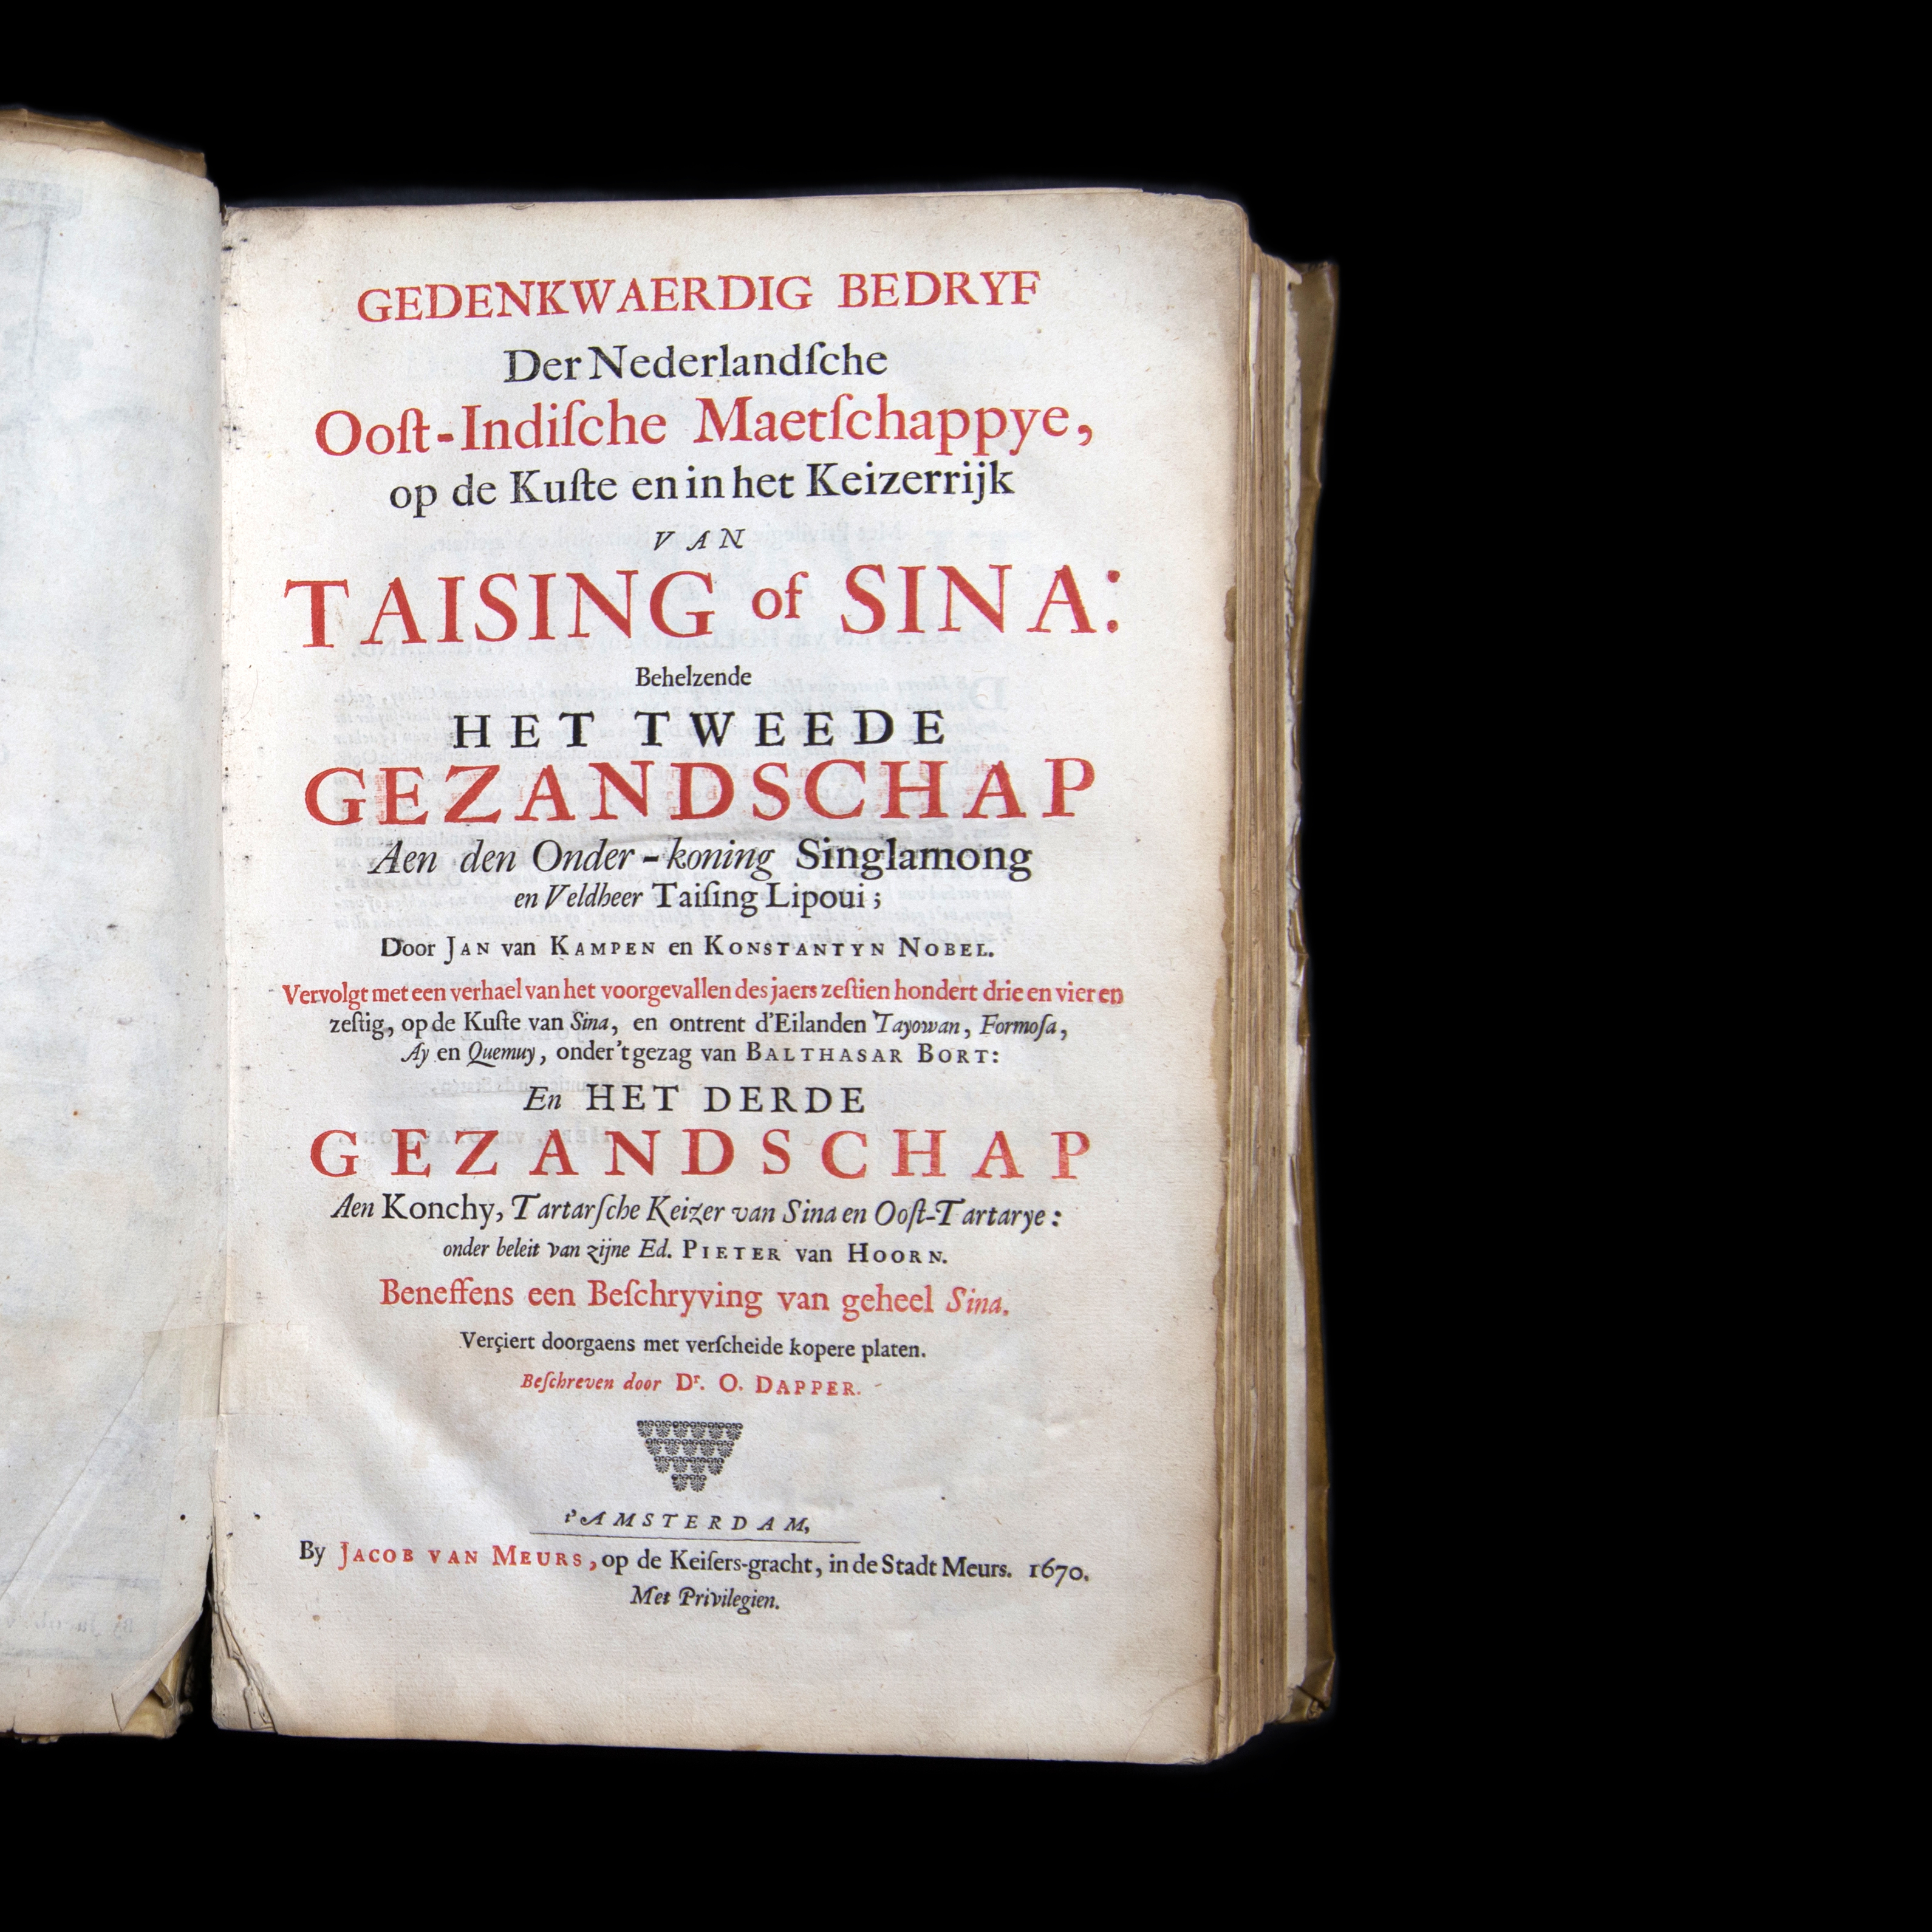 GEDENKWAERDIG BEDRYF
Der Nederlandſche
Ooſt-Indiſche Maetſchappye,
op de Kuſte en in het Keizerrijk
VAN
TAISING of SINA:
Behelzende
HET TWEEDE
GEZANDSCHAP
Aen den Onder-koning Singlamong
en Veldheer Taiſing Lipoui;
Door JAN van KAMPEN en KONSTANTYN NOBEL.
Vervolgt met een verhael van het voorgevallen des jaers zeſtien hondert drie en vier en
zeſtig, op de Kuſte van Sina, en ontrent d'Eilanden Tayowan, Formoſa,
Ay en Quemuy, onder 't gezag van BALTHASAR BORT:
En HET DERDE
GEZANDSCHAP
Aen Konchy, Tartarſche Keizer van Sina en Ooſt-Tartarye:
onder beleit van zijne Ed. PIETER van HOORN.
Beneffens een Beſchryving van geheel Sina.
Verçiert doorgaens met verſcheide kopere platen.
Beſchreven door Dr. O. DAPPER.
t'AMSTERDAM,
By JACOB VAN MEURS, op de Keiſers-gracht, in de Stadt Meurs. 1670.
Met Privilegien.